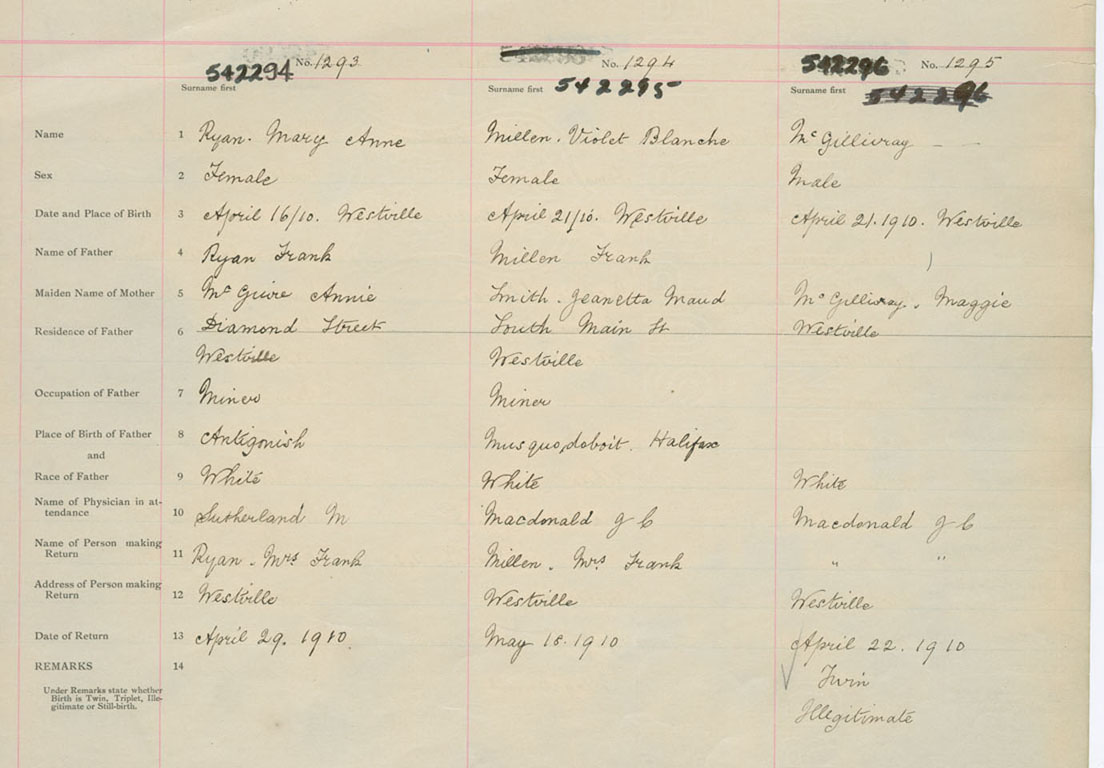 542294 No. 1293 No. 1294 542296 No. 1295
Surname first Surname first 542295 Surname first 542296
Name 1 Ryan. Mary Anne Millen. Violet Blanche McGillivray — —
Sex 2 Female Female Male
Date and Place of Birth 3 April 16/10. Westville April 21/10. Westville April 21.1910. Westville
Name of Father 4 Ryan Frank Millen Frank
Maiden Name of Mother 5 McGuire Annie Smith. Jeanetta Maud McGillivray. Maggie
Residence of Father 6 Diamond Street South Main St Westville
Westville Westville
Occupation of Father 7 Miner Miner
Place of Birth of Father 8 Antigonish Musquodoboit. Halifax
and
Race of Father 9 White White White
Name of Physician in at-
tendance 10 Sutherland M Macdonald J C Macdonald J C
Name of Person making
Return 11 Ryan. Mrs Frank Millen. Mrs Frank " "
Address of Person making
Return 12 Westville Westville Westville
Date of Return 13 April 29. 1910. May 18.1910 April 22.1910
REMARKS 14 Twin
Under Remarks state whether
Birth is Twin, Triplet, Ille-
gitimate or Still-birth. Illegitimate